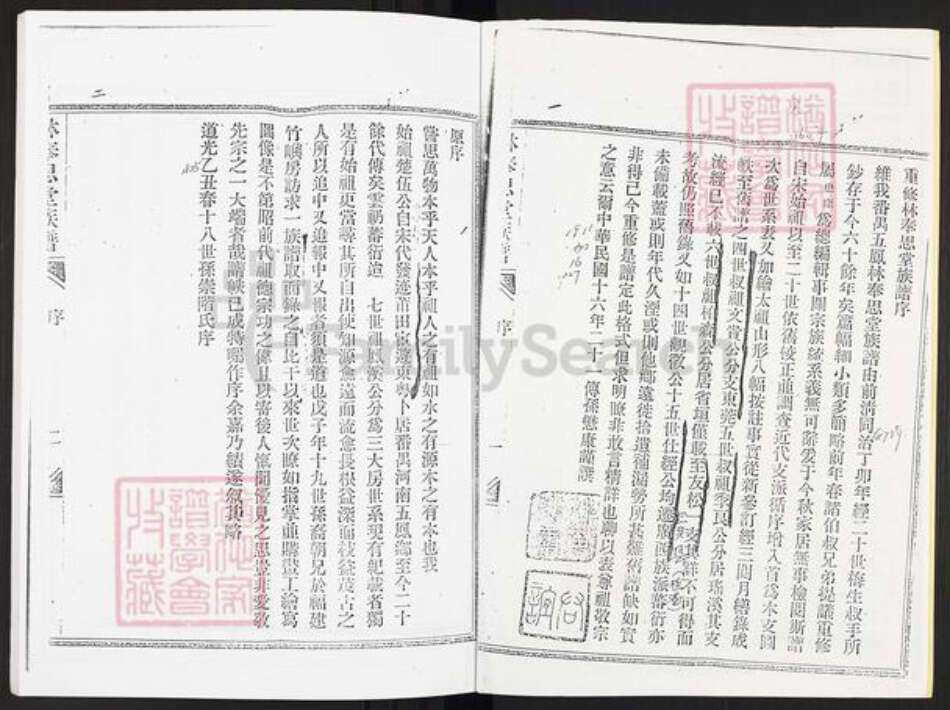 重修林奉思堂族譜序
維我番禺五鳳林奉思堂族譜由前清同治丁卯年經二十世梅生叔手所
鈔存于今六十餘年矣篇幅細小類多簡略前年春諸伯叔兄弟提議重修
屬懋康為總編輯事關宗族統系義無可辭爰于今秋家居無事檢閱斯譜
自宋始祖以至二十世依舊役正並調查近代支派循序增入首為本支圖
次為世系表又加繪太祖山形八幅按註事實從新彙訂經三閱月繕錄成
帙至舊譜之四世叔祖文賞公分支東莞五世叔祖季良公分居瑤溪其支
流經已不載六世叔祖柏齋公分居省垣僅載至友松 詳不可得而
考故仍照舊錄又如十四世觀徵公十五世仕經公均遷廣西族派蕃衍亦
未備載蓋或則年代久湮或則他鄉遠徙拾遺補漏勢所甚難舊譜缺如實
非得已今重修是譜定此格式但求明瞭非敢言精詳也聊以表尊祖敬宗
之意云爾中華民國十六年二十一傳孫懋康謹譔
林奉思堂族譜 序 一
一
原序
嘗思萬物本乎天人本乎祖人之有祖如水之有源木之有本也我
始祖楚伍公自宋代發迹莆田宦遊東粵卜居番禺河南五鳳鄉至今二十
餘代傳矣雲礽蕃衍造 七世祖鳳溪公分為三大房世系斐有紀載者獨
是有始祖更當尋其所自出使知源愈遠而流愈長根益深而枝益茂古之
人所以追中又追報中又報者須是道也戊子年十九世孫裔朝兄於福建
竹嶼房訪求一族譜取而錄之自比干以來世次瞭如指掌並購畫工繪為
圖像是不第昭前代祖德宗功之優且以啓後人愾聞僾見之思豈非愛敬
先宗之一大端者哉請帙已成特囑作序余嘉乃績遂叙其略
道光乙丑春十八世孫崇階氏序
林奉思堂族譜 序 二
二
FamilySearch